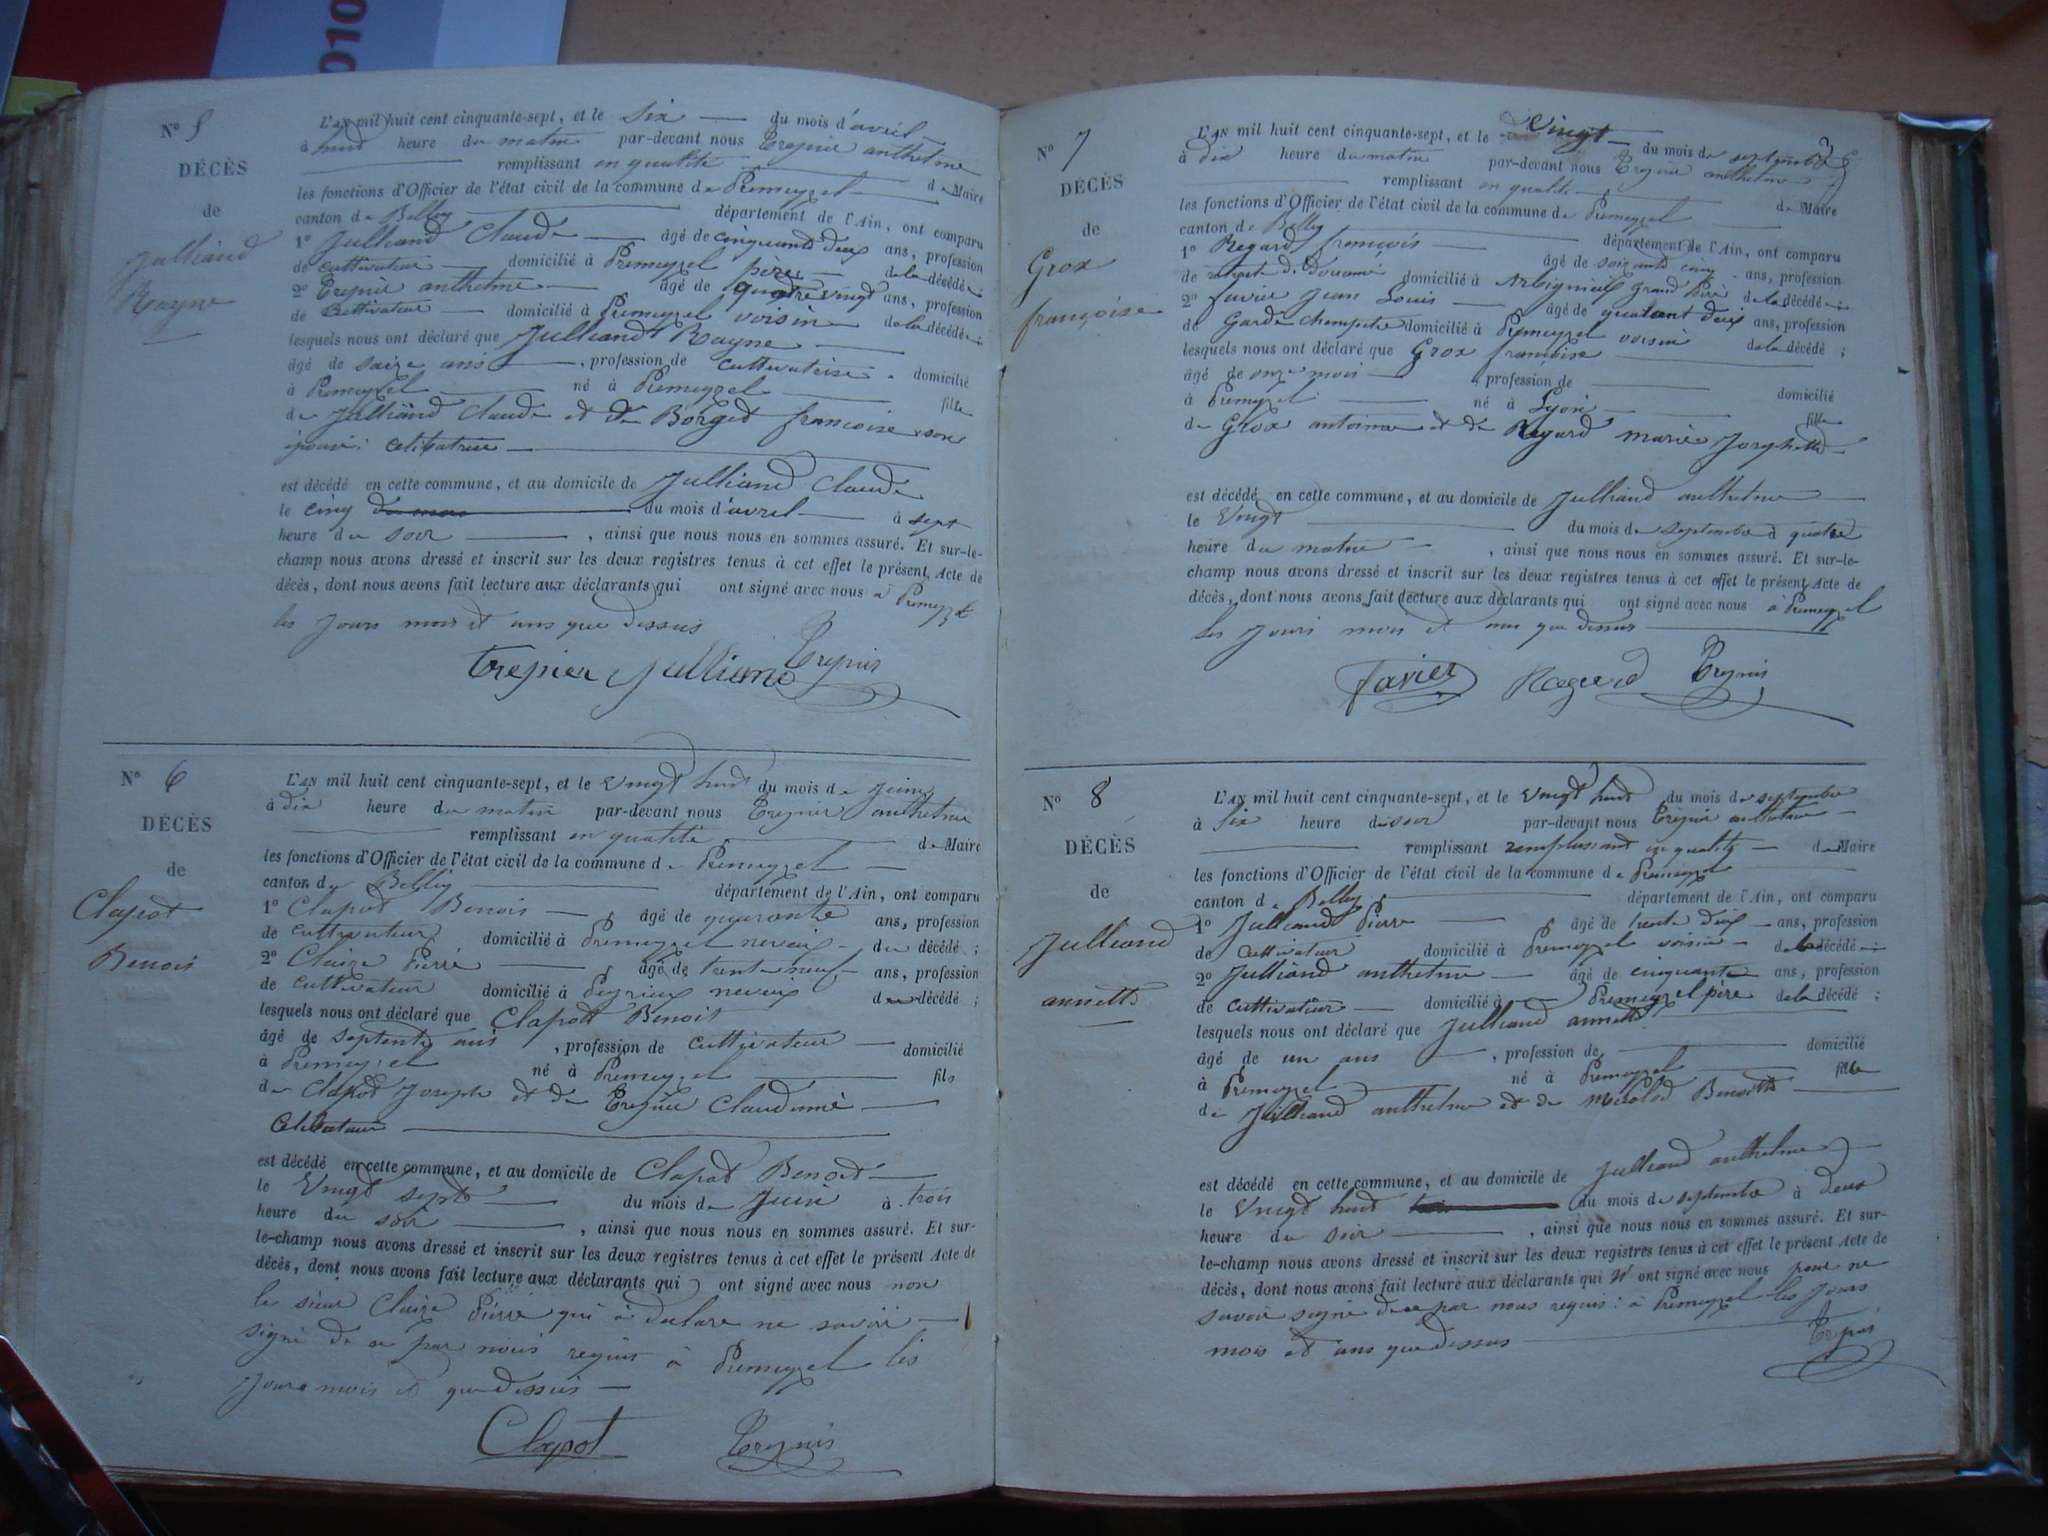 0100
N° 5
DÉCÈS
de
Julliand
Rayne
L'AN mil huit cent cinquante-sept, et le six du mois d'avril
à huit heure du matin par-devant nous Trepier anthelme
remplissant en qualité de Maire
les fonctions d'Officier de l'état civil de la commune de Premeyzel
canton de Belley département de l'Ain, ont comparu
1° Julliand Claude âgé de cinquante deux ans, profession
de cultivateur domicilié à Premeyzel père de la décédé
2° Trepier anthelme âgé de quatre vingt ans, profession
de Cultivateur domicilié à Premeyzel voisin de la décédé
lesquels nous ont déclaré que Julliand Rayne
âgé de saize ans, profession de cultivatrise domicilié
à Premeyzel né à Premeyzel fille
de Julliand Claude et de Borget francoise son
épouse: celibatrise
est décédé en cette commune, et au domicile de Julliand Claude
le cinq du mois d'avrel à sept
heure du soir, ainsi que nous nous en sommes assuré. Et sur-le-
champ nous avons dressé et inscrit sur les deux registres tenus à cet effet le présent Acte de
décès, dont nous avons fait lecture aux déclarants qui ont signé avec nous à Premeyzel
les Jours mois et ans que dessus
trepier Julliand Trepier
N° 6
DÉCÈS
de
Clapot
Benois
L'AN mil huit cent cinquante-sept, et le vingt huit du mois de Juin
à dix heure du matin par-devant nous Trepier anthelme
remplissant en qualité de Maire
les fonctions d'Officier de l'état civil de la commune de Premeyzel
canton de Belley département de l'Ain, ont comparu
1° Clapot Benois âgé de quarante ans, profession
de cultivateur domicilié à Premeyzel neveu du décédé;
2° Claire Pierre âgé de trente neuf ans, profession
de cultivateur domicilié à Peyrieu neveu du décédé;
lesquels nous ont déclaré que Clapot Benoit
âgé de septente ans, profession de cultivateur domicilié
à Premeyzel né à Premeyzel fils
de Clapot Joseph et de Trepier Claudine
Celibataire
est décédé en cette commune, et au domicile de Clapot Benoit
le Vingt sept du mois de Juin à trois
heure du soir, ainsi que nous nous en sommes assuré. Et sur-
le-champ nous avons dressé et inscrit sur les deux registres tenus à cet effet le présent Acte de
décès, dont nous avons fait lecture aux déclarants qui ont signé avec nous non
le sieur Claire Pierre qui à declare ne savoir
signé de ce par nous requis à Premeyzel les
Jours mois et que dessus
Clapot Trepier
N° 7
DÉCÈS
de
Grox
françoise
L'AN mil huit cent cinquante-sept, et le Vingt du mois de septembre
à dix heure du matin par-devant nous Trepier anthelme
remplissant en qualité de Maire
les fonctions d'Officier de l'état civil de la commune de Premeyzel
canton de Belley département de l'Ain, ont comparu
1° Regard francois âgé de soixante cinq ans, profession
de retraité de douane domicilié à Arbignieu Grand père de la décédé
2° favier Jean Louis âgé de quatant deux ans, profession
de Garde Champetre domicilié à Premeyzel voisin de la décédé;
lesquels nous ont déclaré que Grox francoise
âgé de onze mois, profession de domicilié
à Premeyzel né à Lyon fille
de Grox antoine et de Regard marie Josephette
est décédé en cette commune, et au domicile de Julliand anthelme
le Vingt du mois de septembre à quatre
heure du matin, ainsi que nous nous en sommes assuré. Et sur-le-
champ nous avons dressé et inscrit sur les deux registres tenus à cet effet le présent Acte de
décès, dont nous avons fait lecture aux déclarants qui ont signé avec nous à Premeyzel
les Jours mois et ans que dessus
favier Regard Trepier
N° 8
DÉCÈS
de
Julliand
annette
L'AN mil huit cent cinquante-sept, et le Vingt huit du mois de septembre
à six heure du soir par-devant nous Trepier anthelme
remplissant remplissant en qualité de Maire
les fonctions d'Officier de l'état civil de la commune de Premeyzel
canton de Belley département de l'Ain, ont comparu
1° Julliand Pierre âgé de trente dix ans, profession
de Cultivateur domicilié à Premeyzel voisin de la décédé
2° Julliand anthelme âgé de cinquante ans, profession
de cultivateur domicilié à Premeyzel père de la décédé;
lesquels nous ont déclaré que Julliand annette
âgé de un ans, profession de domicilié
à Premeyzel né à Premeyzel fille
de Julliand anthelme et de Benoitte
est décédé en cette commune, et au domicile de Julliand anthelme
le Vingt huit du mois de septembre à deux
heure du soir, ainsi que nous nous en sommes assuré. Et sur-
le-champ nous avons dressé et inscrit sur les deux registres tenus à cet effet le présent Acte de
décès, dont nous avons fait lecture aux déclarants qui n' ont signé avec nous pour ne
savoir signé de ce par nous requis: à Premeyzel les Jours
mois et ans que dessus Trepier